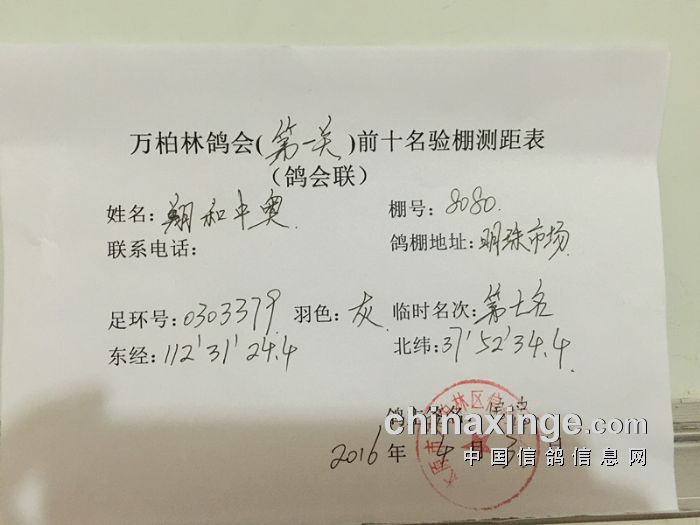 万柏林鸽会(第一关)前十名验棚测距表
(鸽会联)
姓名:翔和中奥 棚号:8080.
联系电话: 鸽棚地址:明珠市场
足环号:0303379 羽色:灰 临时名次:第七名
东经:112'31'24.4 北纬:37'52'34.4
鸽主签名
chinaxinge.com
2016年4月3日
中国信鸽信息网